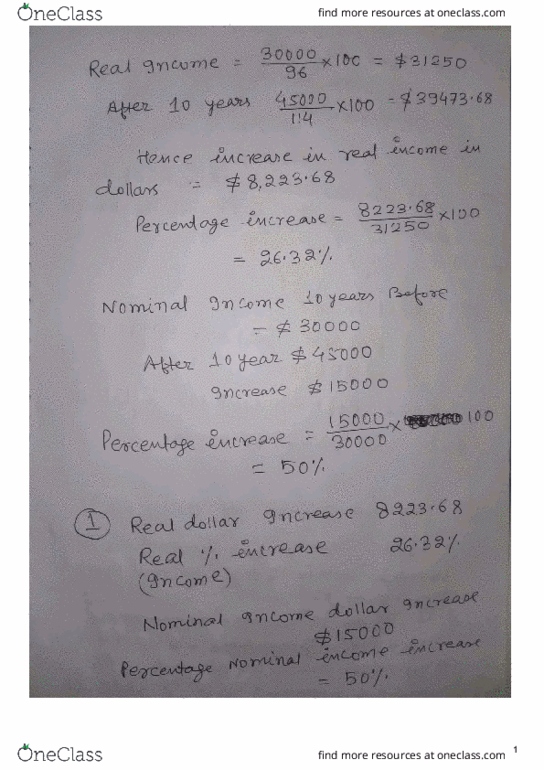 OneClass
find more resources at oneclass.com
Real Income = 30000/96 ×100 = $31250
After 10 years 45000/114 ×100 = $39473.68
Hence increase in real income in
dollars = $8,223.68
Percentage increase = 8223.68/31250 ×100
= 26.32%
Nominal Income 10 years Before
= $30000
After 10 year $45000
Increase $15000
Percentage increase = 15000/30000 × 100
= 50%
① Real dollar Increase 8223.68
Real % increase 26.32%
(Income)
Nominal Income dollar Increase
$15000
Percentage Nominal income increase
= 50%
OneClass
find more resources at oneclass.com
1